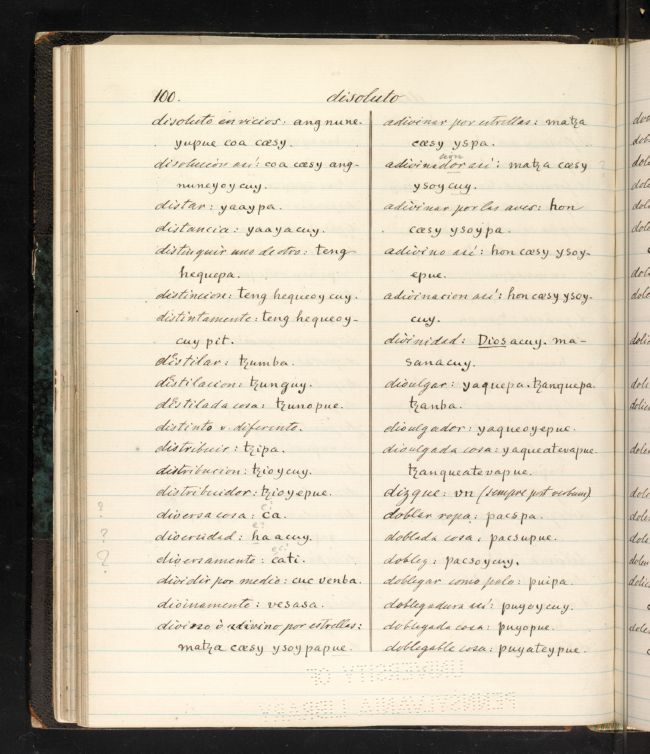 100.
disoluto
disoluto en vicios: ang nune-
yupue coa cœsy.
disolucion así: coa cœsy ang-
nuneyoycuy.
distar: yaaypa.
distancia: yaayacuy.
distinguir uno de otro: teng
hequepa.
distincion: teng hequeoycuy.
distintamente: teng hequeoy-
cuy pit.
distilar: tzumba.
distilacion: tzunguy.
distilada cosa: tzunopue.
distinto v. diferente.
distribuir: tzipa.
distribucion: tzioycuy.
distribuidor: tzioyepue.
? diversa cosa: ca.
? diversidad: haacuy.
? diversamente: cati.
dividir por medio: cuc venba.
divinamente: vesasa.
divino ò adivino por estrellas:
matza cœsy ysoypapue.
adivinar por estrellas: matza
cœsy yspa.
cion
adivinador así: matza cœsy
ysoycuy.
adivinar por las aves: hon
cœsy ysoypa.
adivino así: hon cœsy ysoy-
epue.
adivinacion así: hon cœsy ysoy-
cuy.
divinidad: Diosacuy. ma-
sanacuy.
divulgar: yaquepa. tzanquepa.
tzanba.
divulgador: yaqueoyepue.
divulgada cosa: yaqueatevapue.
tzanqueatevapue.
dizque: vn (sempre post verbum)
doblar ropa: pacspa.
doblada cosa: pacsupue.
doblez: pacsoycuy.
doblegar como palo: puipa.
doblegadura así: puyoycuy.
doblegada cosa: puyopue.
doblegable cosa: puyateypue.
UNIVERSITY OF
PENNSYLVANIA LIBRARY